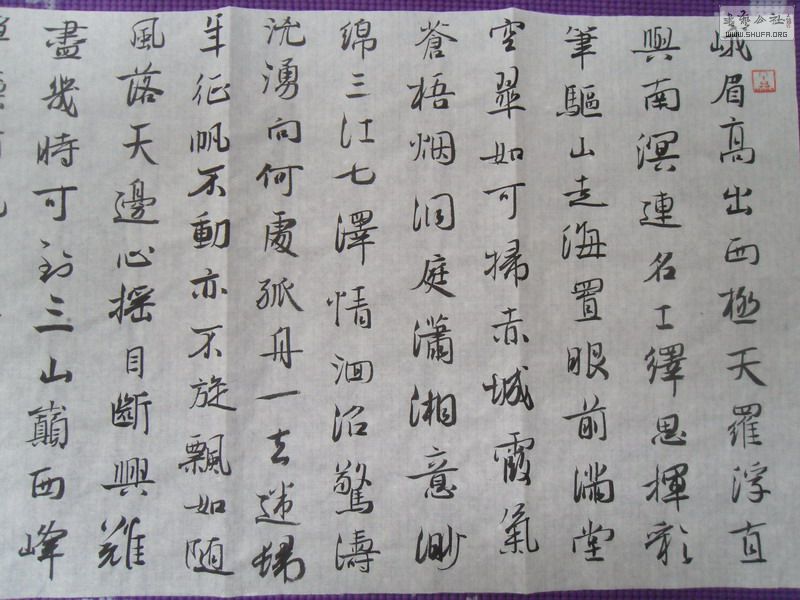 峨眉高出西極天羅浮直
與南溟連名工繹思揮彩
筆驅山走海置眼前滿堂
空翠如可掃赤城霞氣
蒼梧烟洞庭瀟湘意渺
綿三江七澤情洄沿驚濤
洶湧向何處孤舟一去迷歸
年征帆不動亦不旋飄如随
風落天邊心摇目斷興難
盡幾時可到三山巔西峰
書藝公社
www.SHUFA.ORG